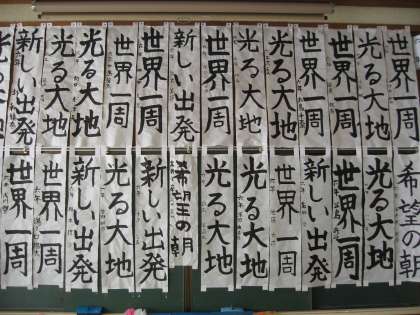 世界一周
光る大地
世界一周
世界一周
光る大地
光る大地
世界一周
新しい出発
世界一周
世界一周
光る大地
光る大地
新しい出発
光る大地
希望の朝
光る大地
世界一周
新しい出発
世界一周
光る大地
光る大地
希望の朝
新しい出発
光る大地
新しい出発
世界一周
世界一周